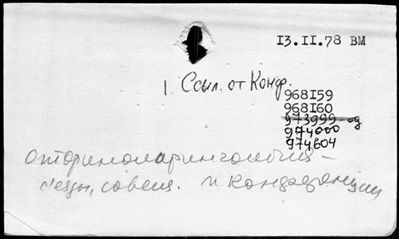 13.II.78 ВМ
1. Ссыл. от Конф.
968159
968160
973999-од
974000
974604
Оториноларингология –
съезды, совещ. и конференции